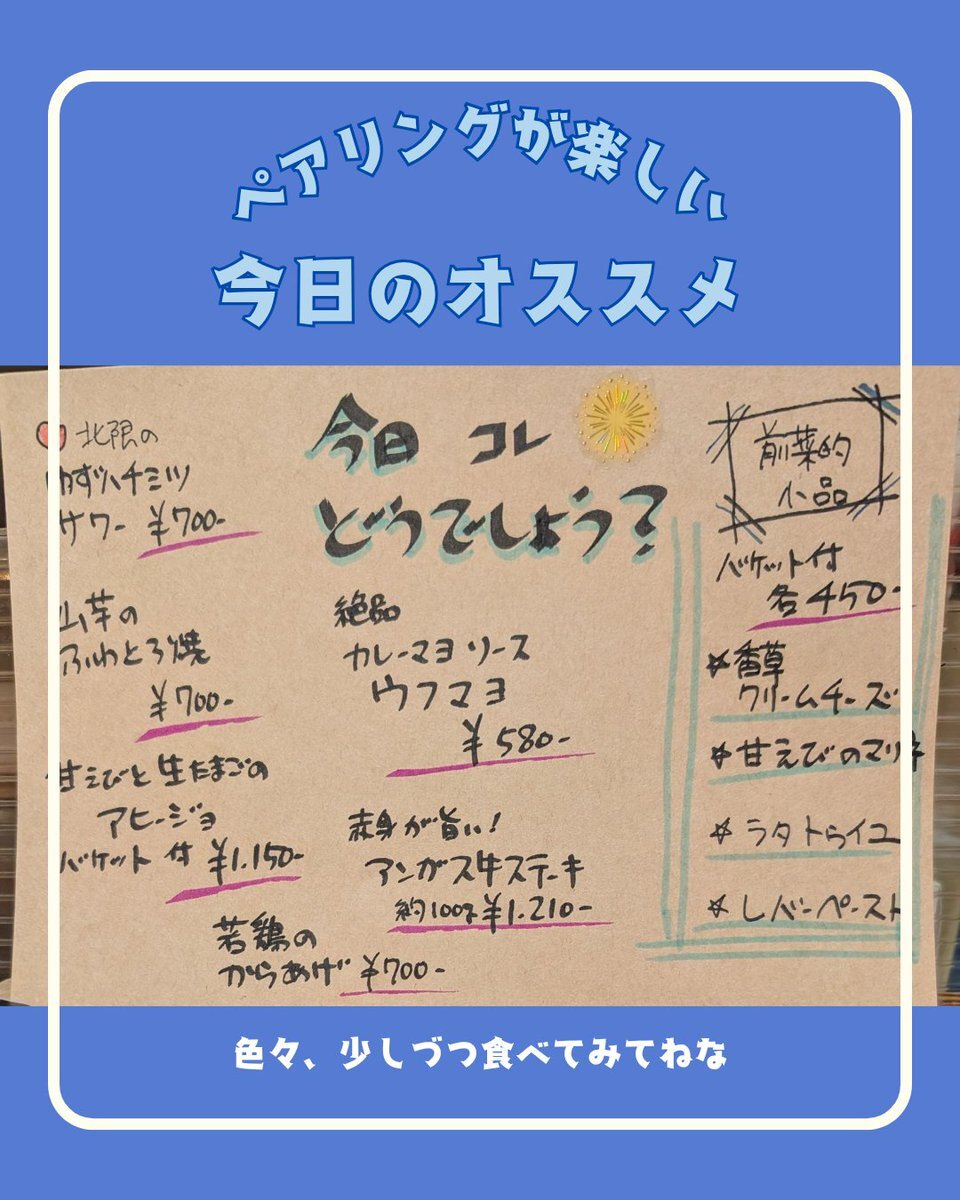 ペアリングが楽しい
今日のオススメ
北限の
ゆずハチミツ
サワー ¥700-
山芋の
ふわとろ焼
¥700-
甘えびと生たまごの
アヒージョ
バケット付 ¥1.150-
若鶏の
からあげ ¥700-
今日 コレ
どうでしょう?
絶品
カレーマヨソース
ウフマヨ
¥580-
赤身が旨い!
アンガス牛ステーキ
約100g ¥1.210-
前菜的
小品
バケット付
各450-
☆香草
クリームチーズ
☆甘えびのマリネ
☆ラタトゥイユ
☆レバーペースト
色々、少しづつ食べてみてねな